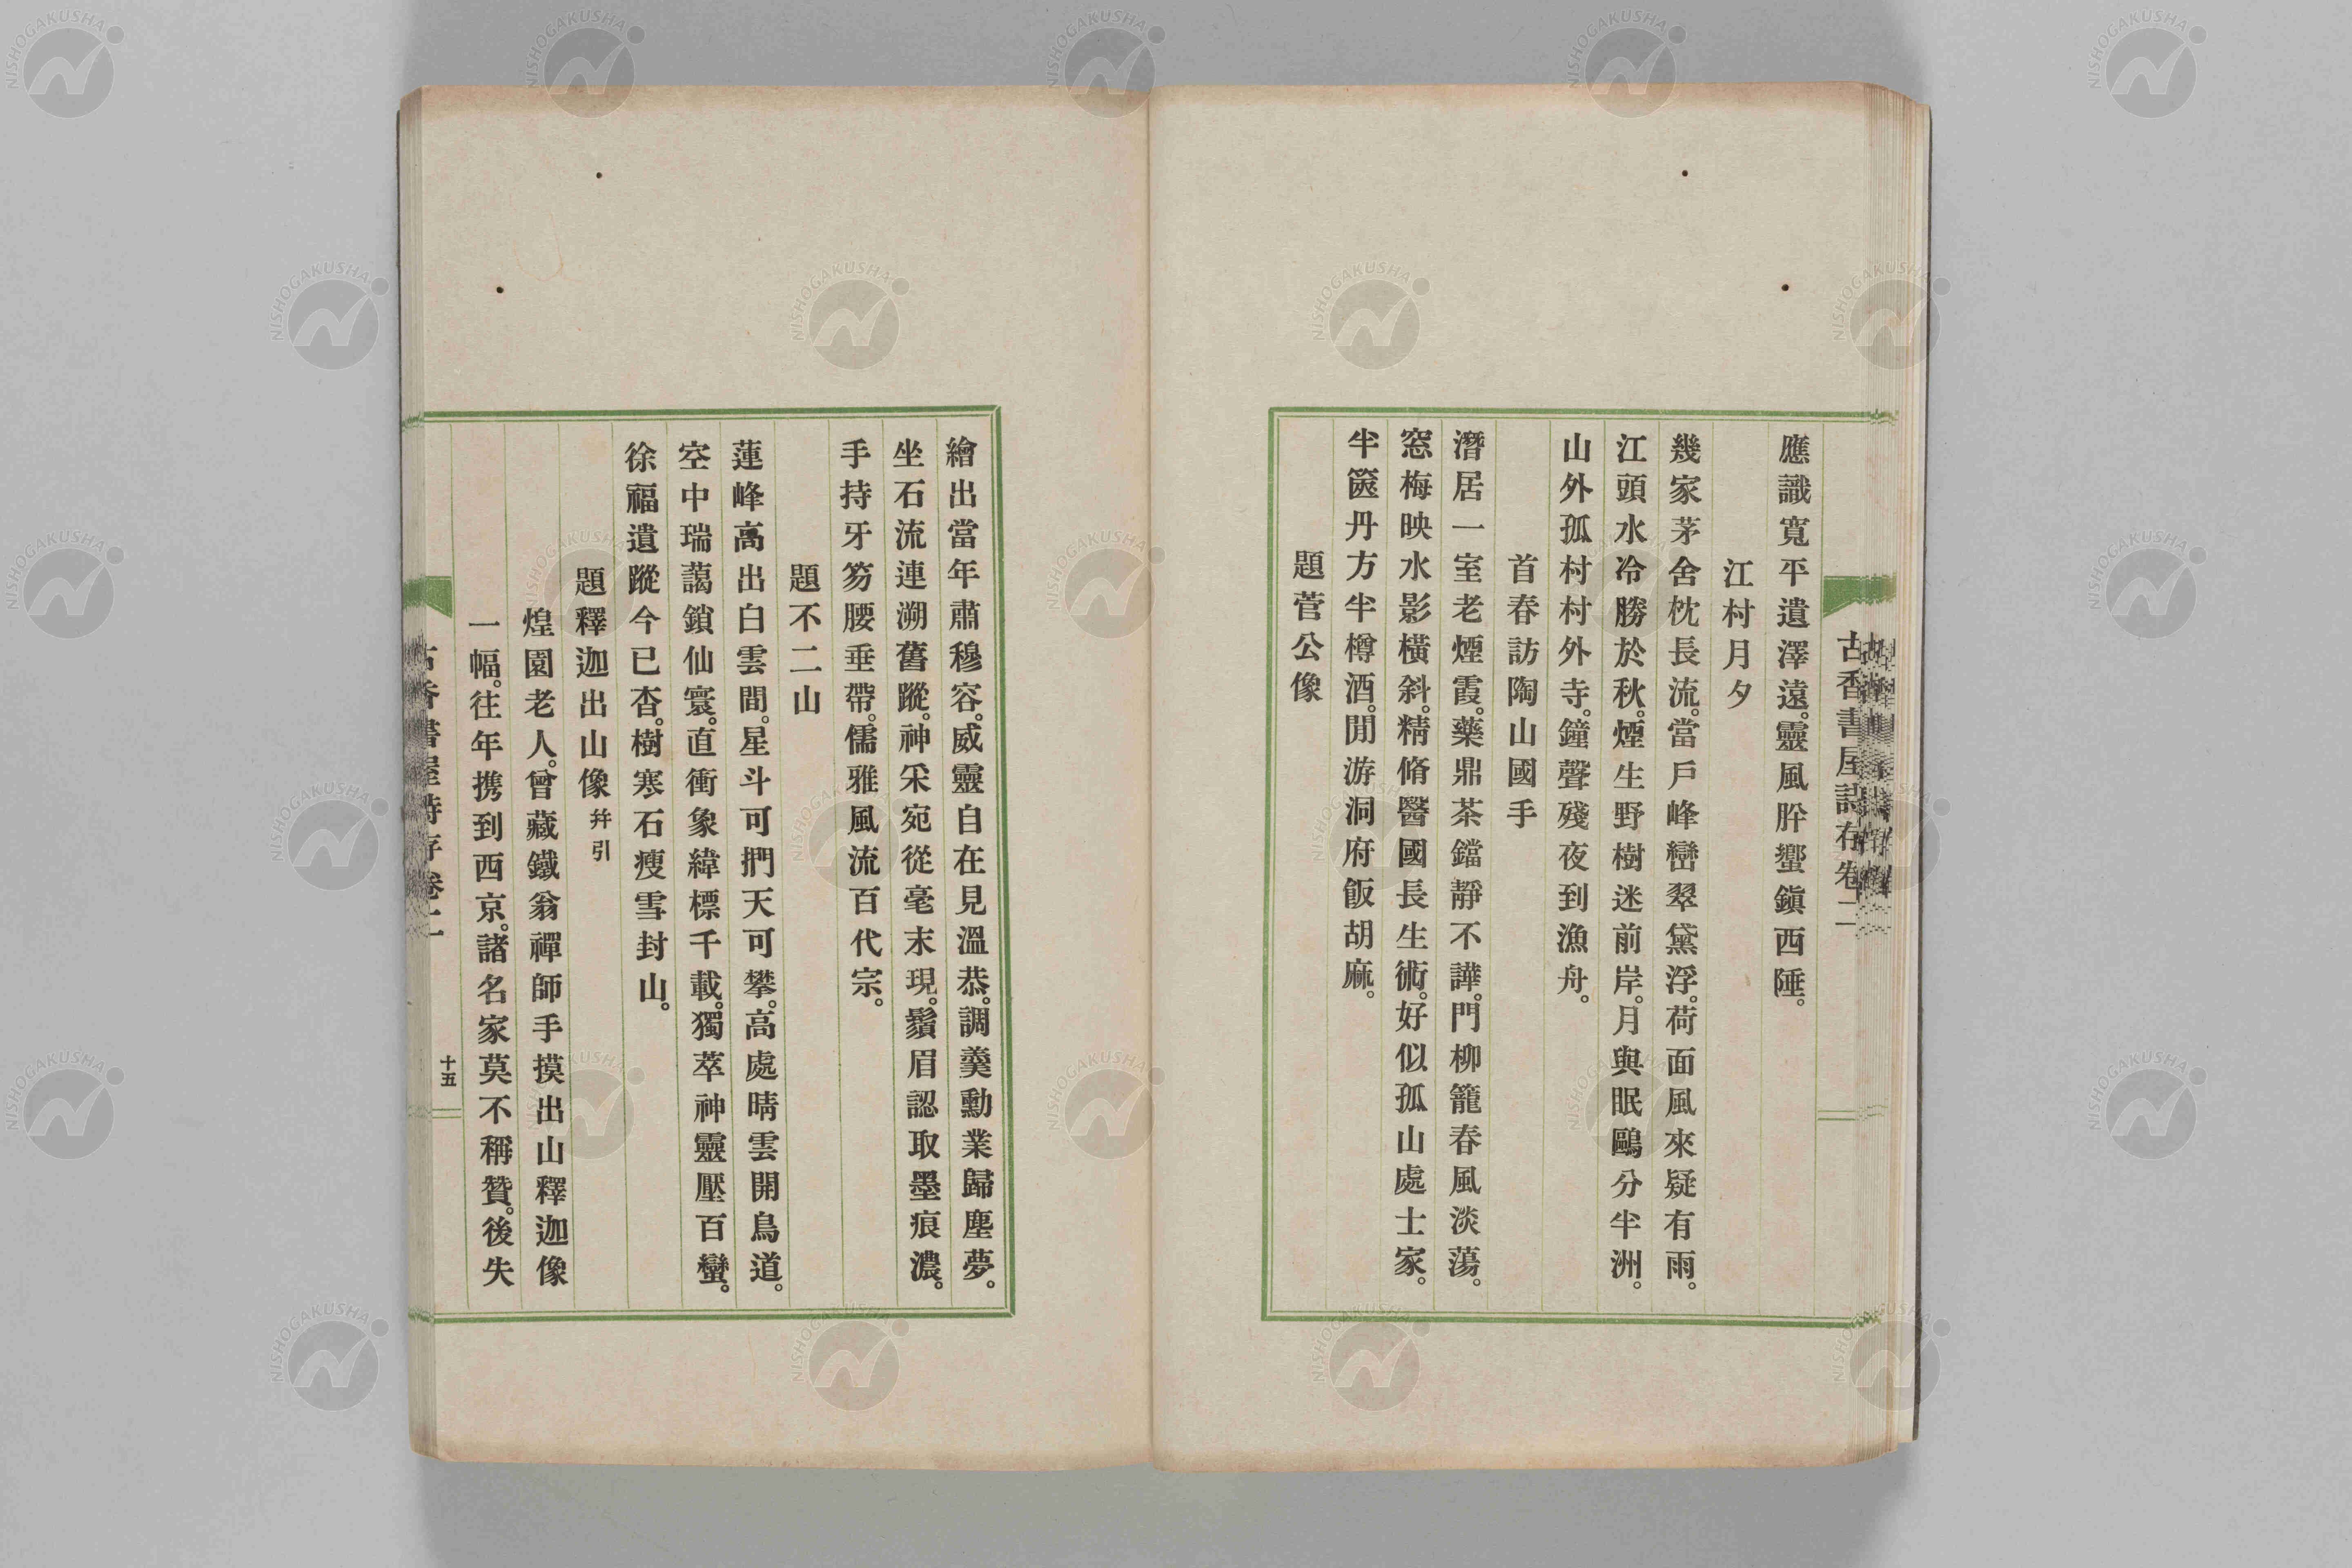 古香書屋詩存卷二
應識寬平遺澤遠。靈風肸蠁鎭西陲。
江村月夕
幾家茅舍枕長流。當戶峰巒翠黛浮。荷面風來疑有雨。
江頭水冷勝於秋。煙生野樹迷前岸。月與眠鷗分半洲。
山外孤村村外寺。鐘聲殘夜到漁舟。
首春訪陶山國手
潛居一室老煙霞。藥鼎茶鐺靜不譁。門柳籠春風淡蕩。
窓梅映水影橫斜。精脩醫國長生術。好似孤山處士家。
半篋丹方半樽酒。閒游洞府飯胡麻。
題菅公像
繪出當年肅穆容。威靈自在見溫恭。調羹勳業歸塵夢。
坐石流連溯舊蹤。神采宛從毫末現。鬚眉認取墨痕濃。
手持牙笏腰垂帶。儒雅風流百代宗。
題不二山
蓮峰高出白雲間。星斗可捫天可攀。高處晴雲開鳥道。
空中瑞藹鎖仙寰。直衝象緯標千載。獨萃神靈壓百蠻。
徐福遺蹤今已杳。樹寒石瘦雪封山。
題釋迦出山像幷引
煌園老人。曾藏鐵翁禪師手摸出山釋迦像
一幅。往年携到西京。諸名家莫不稱贊。後失
古香書屋詩存卷二
十五
NISHOGAKUSHA